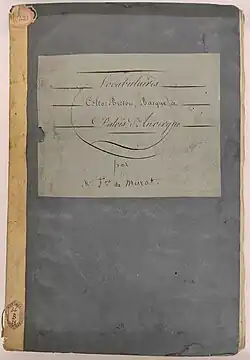 Vocabulaires
Celto-Breton, Basque &
Patois d'Auvergne
par
de Murat